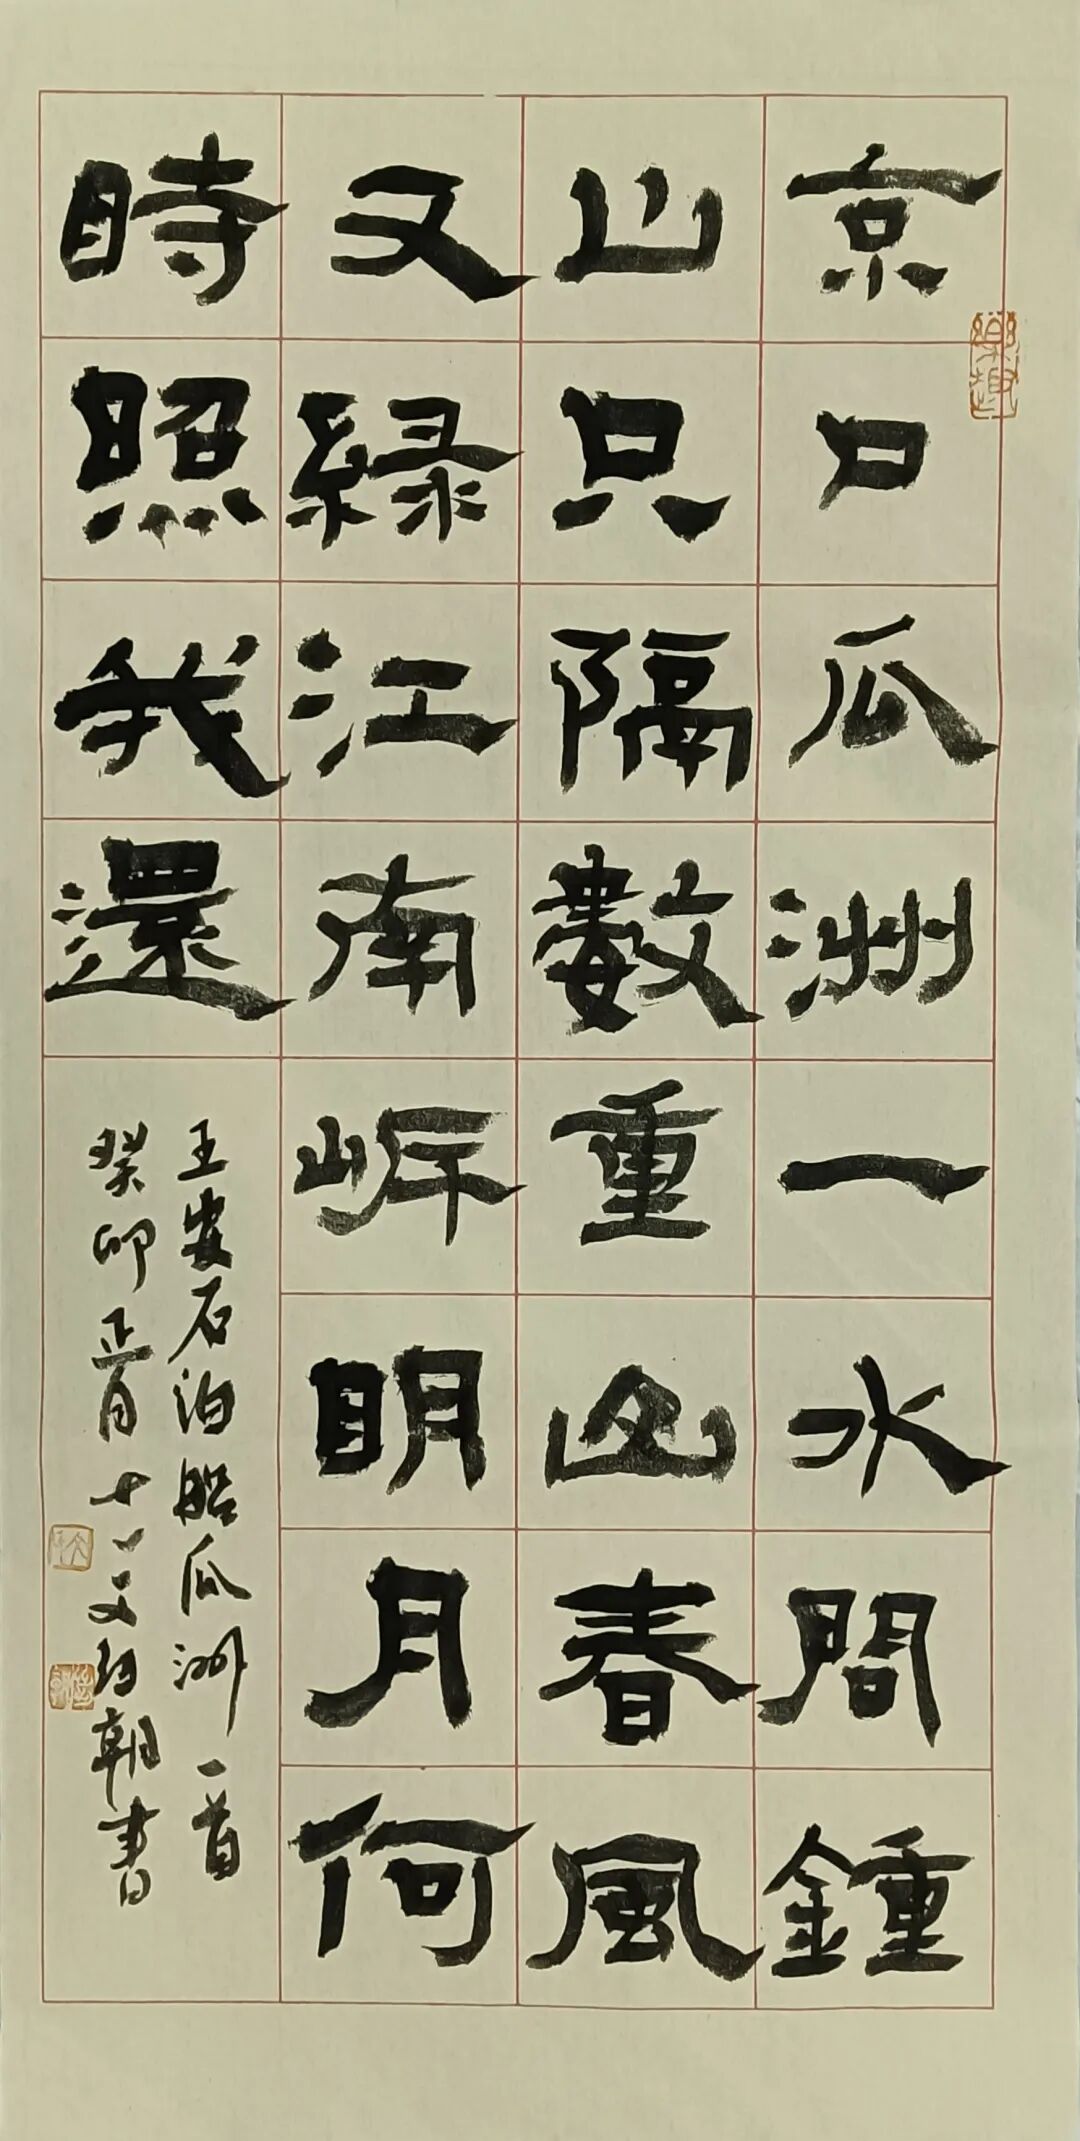 京口瓜洲一水間鍾
山只隔數重山春風
又緑江南岸明月何
時照我還
王安石泊船瓜洲一首
癸卯正月十一文朝書